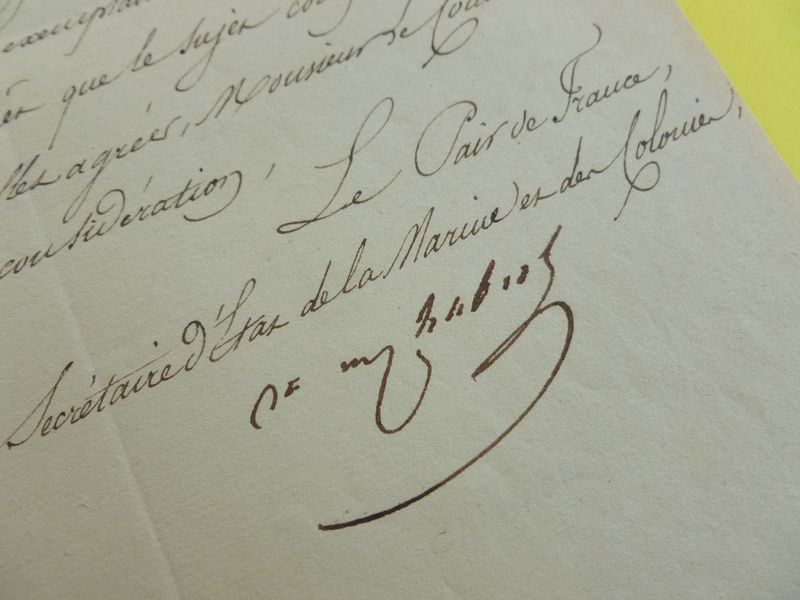 exemplai
ès que le sujet com
llez agréer, Monsieur de Cou
considération,
Le Pair de France,
Secrétaire d'Etat de la Marine et des Colonies,